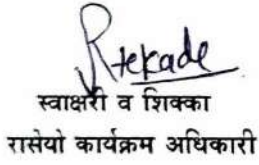 Rtekade
स्वाक्षरी व शिक्का
रासेयो कार्यक्रम अधिकारी